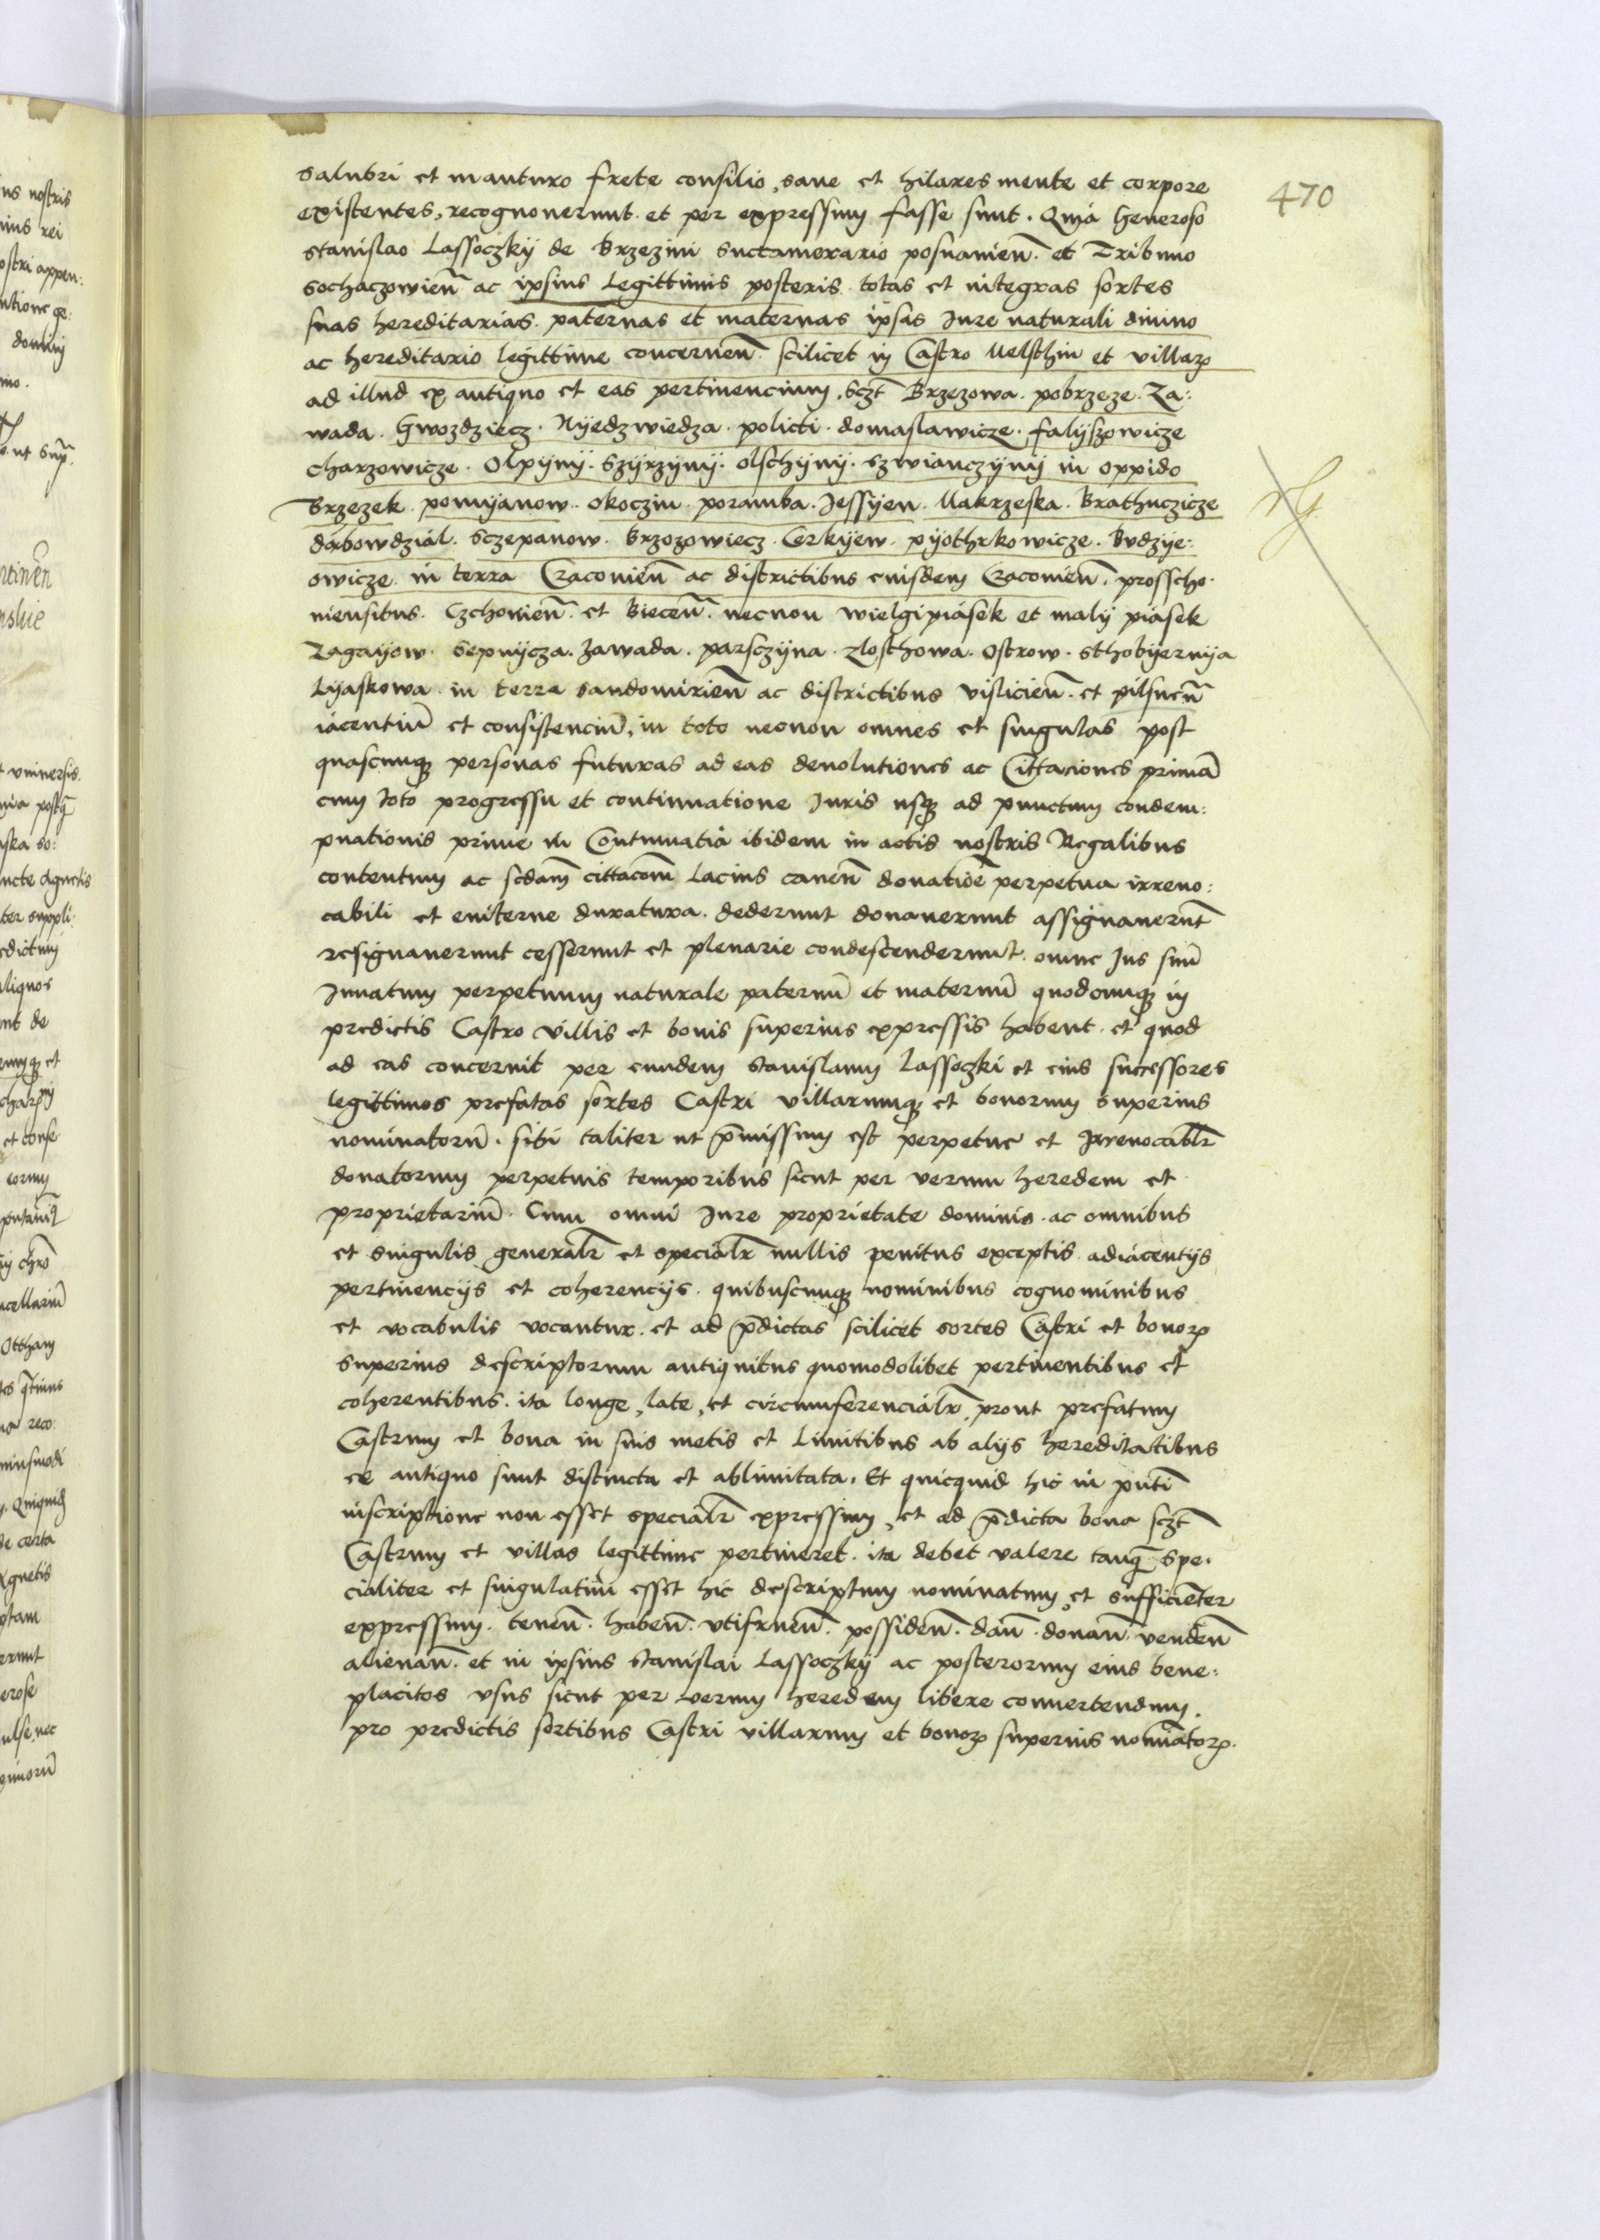 470
salubri et maturo frete consilio, sane et hilares mente et corpore
existentes, recognouerunt et per expressum fasse sunt. Quia Generoso
Stanislao Lassoczkÿ de Brzezini Succamerario posnanien̄. et Tribuno
Sochaczowien̄ ac ipsius Legittimis posteris totas et integras sortes
suas hereditarias paternas et maternas ipsas Jure naturali diuino
ac hereditario legittime concernen̄. scilicet in Castro Melsthin et villaꝝ
ad illud ex antiquo et eas pertinencium, sczt̄ Brzezowa. pobrzeze. Za:
wada. Gwozdziecz. Nÿedzwiedza. policti. domaslawicze. falÿszowicze
Charzowicze. Olpÿnÿ. Szÿrzÿnÿ. olschÿnÿ. szwianczÿnÿ in oppido
Brzezek. pomÿanow. Okoczin. poramba. Jessÿen. Makrzeska. Brathuczicze
dabowdzial. Sczepanow. Brzozowiecz. Cerkÿew. pÿothrkowicze. Budzÿe:
owicze in terra Cracouien̄ ac districtibus eiusdem Cracouien̄. prossoho-
uiensibus. Czchouien̄. et Biecen̄. necnon wielgi piasek et malÿ piasek
Zagaÿow. Sepnÿcza. Zawada. parsczÿna. Zlosthowa. Ostrow. Sthobÿernÿa
Lÿaskowa in terra Sandomirien̄ ac districtibus vislicien̄. et pilsnen̄
iacentiū et consistenciū, in toto necnon omnes et singulas post
quascunqꝫ personas futuras ad eas deuolutiones ac Cittaciones primā
cum toto progressu et continuatione Juris usqꝫ ad punctum condem:
pnationis prime in Contumatia ibidem in actis nostris Regalibus
contentum ac scdam̄ cittacōm Lacius canen̄ donatiōe perpetua irreuo:
cabili et euiterne duratura. dederunt donauerunt assignauerūt
resignauerunt cesserunt et plenarie condescenderunt. omne Jus suū
Innatum perpetuum naturale paternū et maternū quodcunqꝫ in
predictis Castro villis et bonis superius expressis habent. et quod
ad eas concernit per eundem Stanislaum Lassoczki et eius successores
legittimos prefatas sortes Castri villarumqꝫ et bonorum superius
nominatorū. sibi taliter ut p̄missum est perpetue et Irreuocablr̄
donatorum perpetuis temporibus sicut per verum heredem et
proprietariū. Cum omni Jure proprietate dominio. ac omnibus
et singulis generalr̄ et specialr̄ nullis penitus exceptis adiacentÿs
pertinencÿs et coherencÿs. quibuscunqꝫ nominibus cognominibus
et vocabulis vocantur. et ad p̄dictas scilicet sortes Castri et bonoꝝ
superius descriptorum antiquitus quomodolibet pertinentibus et
coherentibus. ita longe, late, et circumferencialr̄, prout prefatum
Castrum et bona in suis metis et Limitibus ab alÿs hereditatibus
ex antiquo sunt distincta et ablimitata. Et quicquid hic in pn̄ti
inscriptione non esset specialr̄ expressum, et ad p̄dicta bona sczt̄
Castrum et villas legittime pertineret. ita debet valere tanqꝫ̄ spe-
cialiter et singulatim esset hic descriptum nominatum, et sufficiēter
expressum. tenen̄. haben̄. vtifruen̄. possiden̄. dan̄. donan̄. venden̄
alienan̄. et in ipsius Stanislai Lassoczkÿ ac posterorum eius bene:
placitos vsus sicut per verum heredem libere conuertendum.
pro predictis sortibus Castri villarum et bonoꝝ superius nomīatoꝝ.